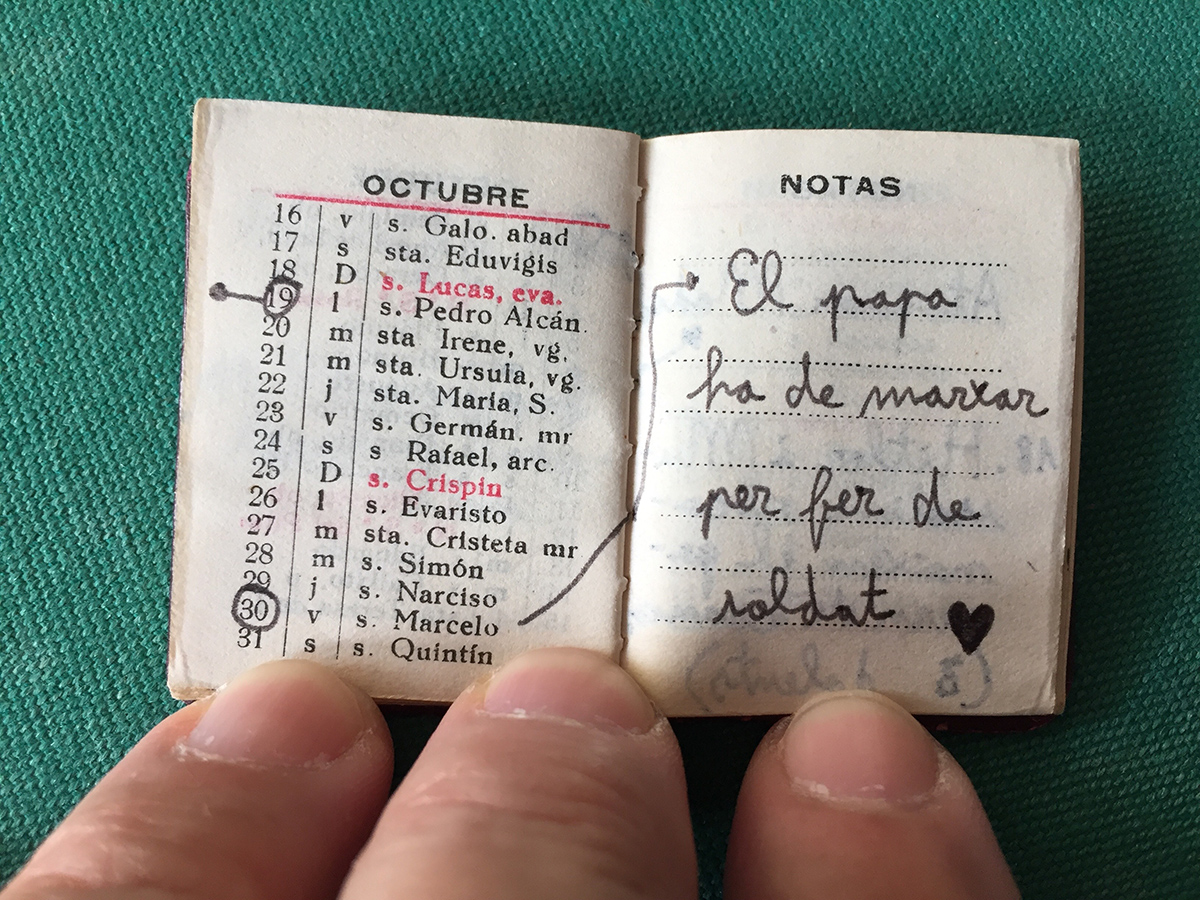 OCTUBRE
16 v s. Galo. abad
17 s sta. Eduvigis
18 D s. Lucas, eva.
19 l s. Pedro Alcán.
20 m sta Irene, vg.
21 m sta. Ursula, vg.
22 j sta. María, S.
23 v s. Germán. mr
24 s s Rafael, arc.
25 D s. Crispín
26 l s. Evaristo
27 m sta. Cristeta mr
28 m s. Simón
29 j s. Narciso
30 v s. Marcelo
31 s s. Quintín
NOTAS
El papa
ha de marxar
per fer de
soldat